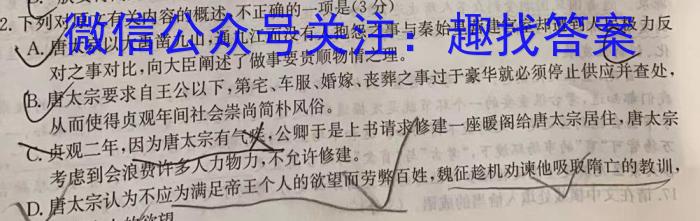 2.下列对原文有关内容的概述,不正确的一项是(3分)
微信公众号关注：趣找答案
A.唐太宗以大禹凿九山,通九江而没有人抱怨之事与秦始
反
对之事对比,向大臣阐述了做事要贵顺物情之理。
B.唐太宗要求自王公以下,第宅、车服、婚嫁、丧葬之事过于豪华就必须停止供应并查处,
从而使得贞观年间社会崇尚简朴风俗。
C.贞观二年,因为唐太宗有气疾,公卿于是上书请求修建一座暖阁给唐太宗居住,唐太宗
考虑到会浪费许多人力物力,不允许修建。
D.唐太宗认为不应为满足帝王个人的欲望而劳弊百姓,魏征趁机劝谏他吸取隋亡的教训,
17.